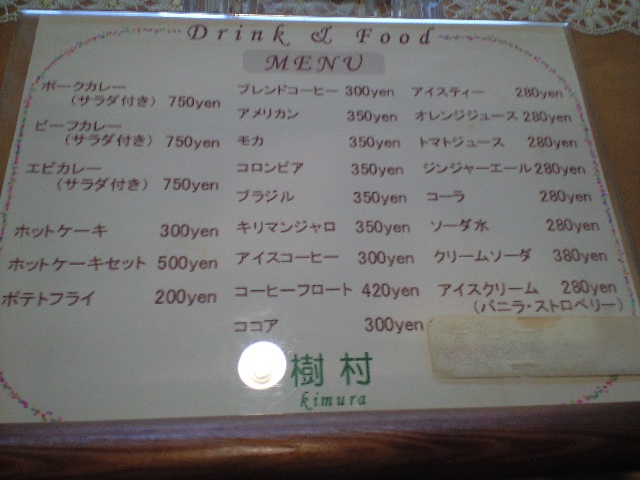 Drink & Food
MENU
ポークカレー
(サラダ付き) 750yen
ビーフカレー
(サラダ付き) 750yen
エビカレー
(サラダ付き) 750yen
ホットケーキ 300yen
ホットケーキセット 500yen
ポテトフライ 200yen
ブレンドコーヒー 300yen
アメリカン 350yen
モカ 350yen
コロンビア 350yen
ブラジル 350yen
キリマンジャロ 350yen
アイスコーヒー 300yen
コーヒーフロート 420yen
ココア 300yen
アイスティー 280yen
オレンジジュース 280yen
トマトジュース 280yen
ジンジャーエール 280yen
コーラ 280yen
ソーダ水 280yen
クリームソーダ 380yen
アイスクリーム 280yen
(バニラ・ストロベリー)
樹村
kimura